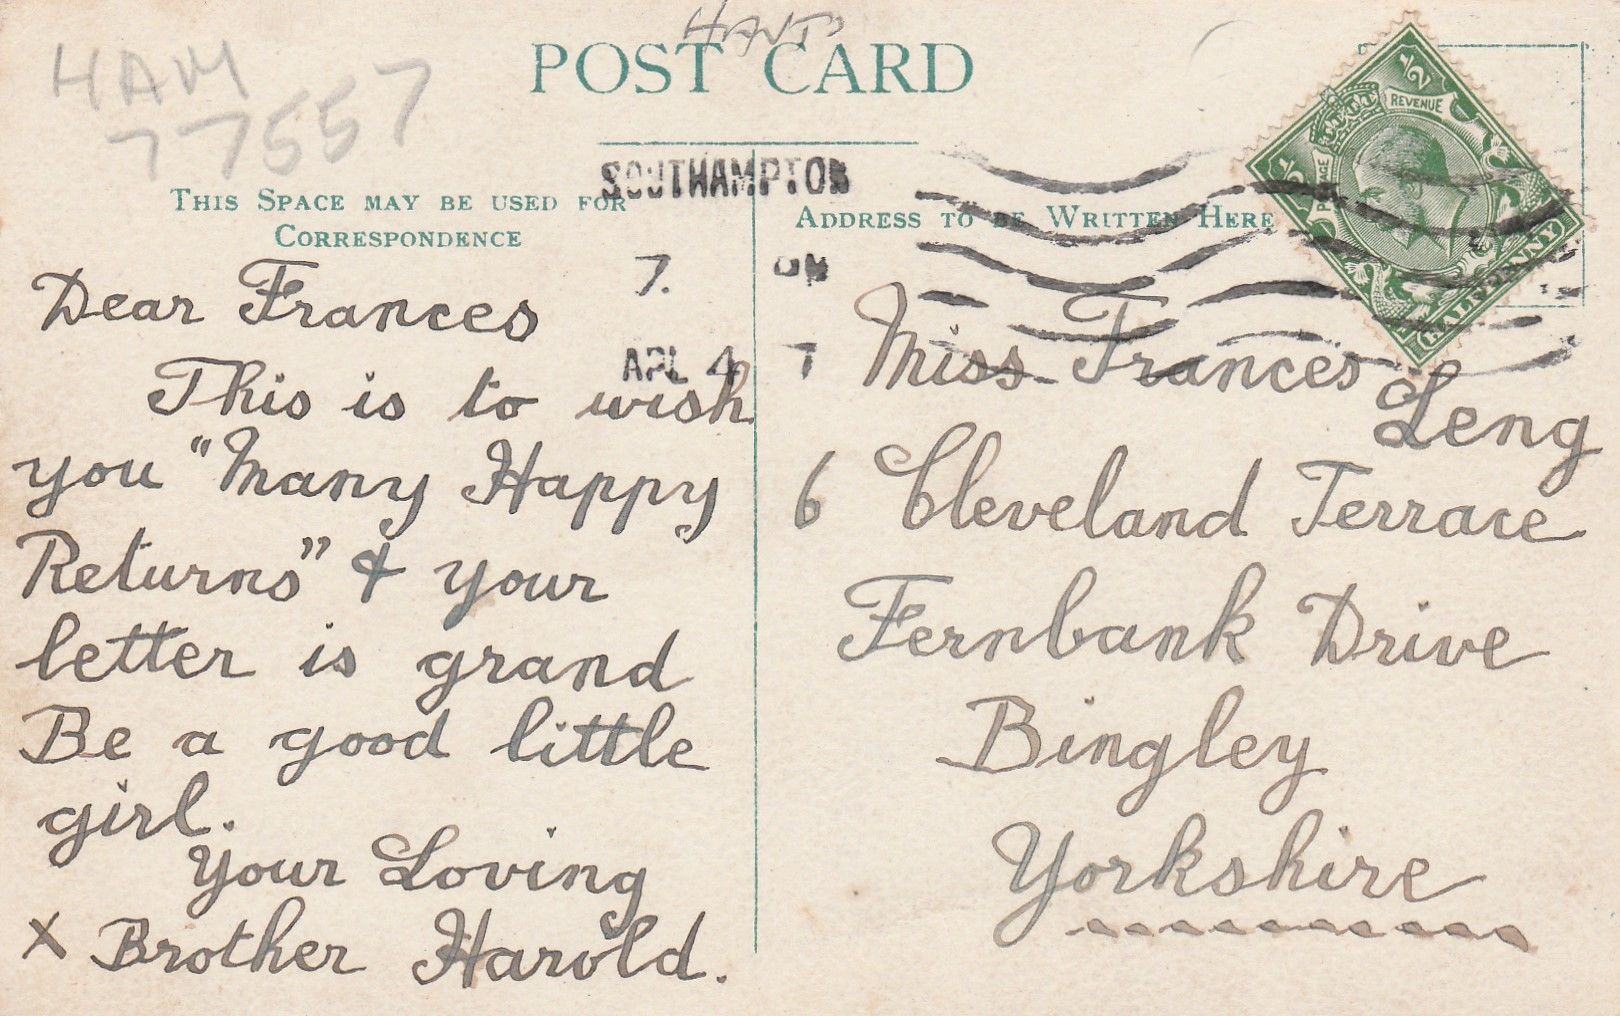 HANTS
POST CARD
HAM
77557
SOUTHAMPTON
THIS SPACE MAY BE USED FOR
CORRESPONDENCE
ADDRESS TO BE WRITTEN HERE
7.
APL 4
1/2
REVENUE
1/2
HALFPENNY
Dear Frances
This is to wish
you "Many Happy
Returns" & your
letter is grand
Be a good little
girl.
Your Loving
X Brother Harold.
Miss Frances Leng
6 Cleveland Terrace
Fernbank Drive
Bingley
Yorkshire